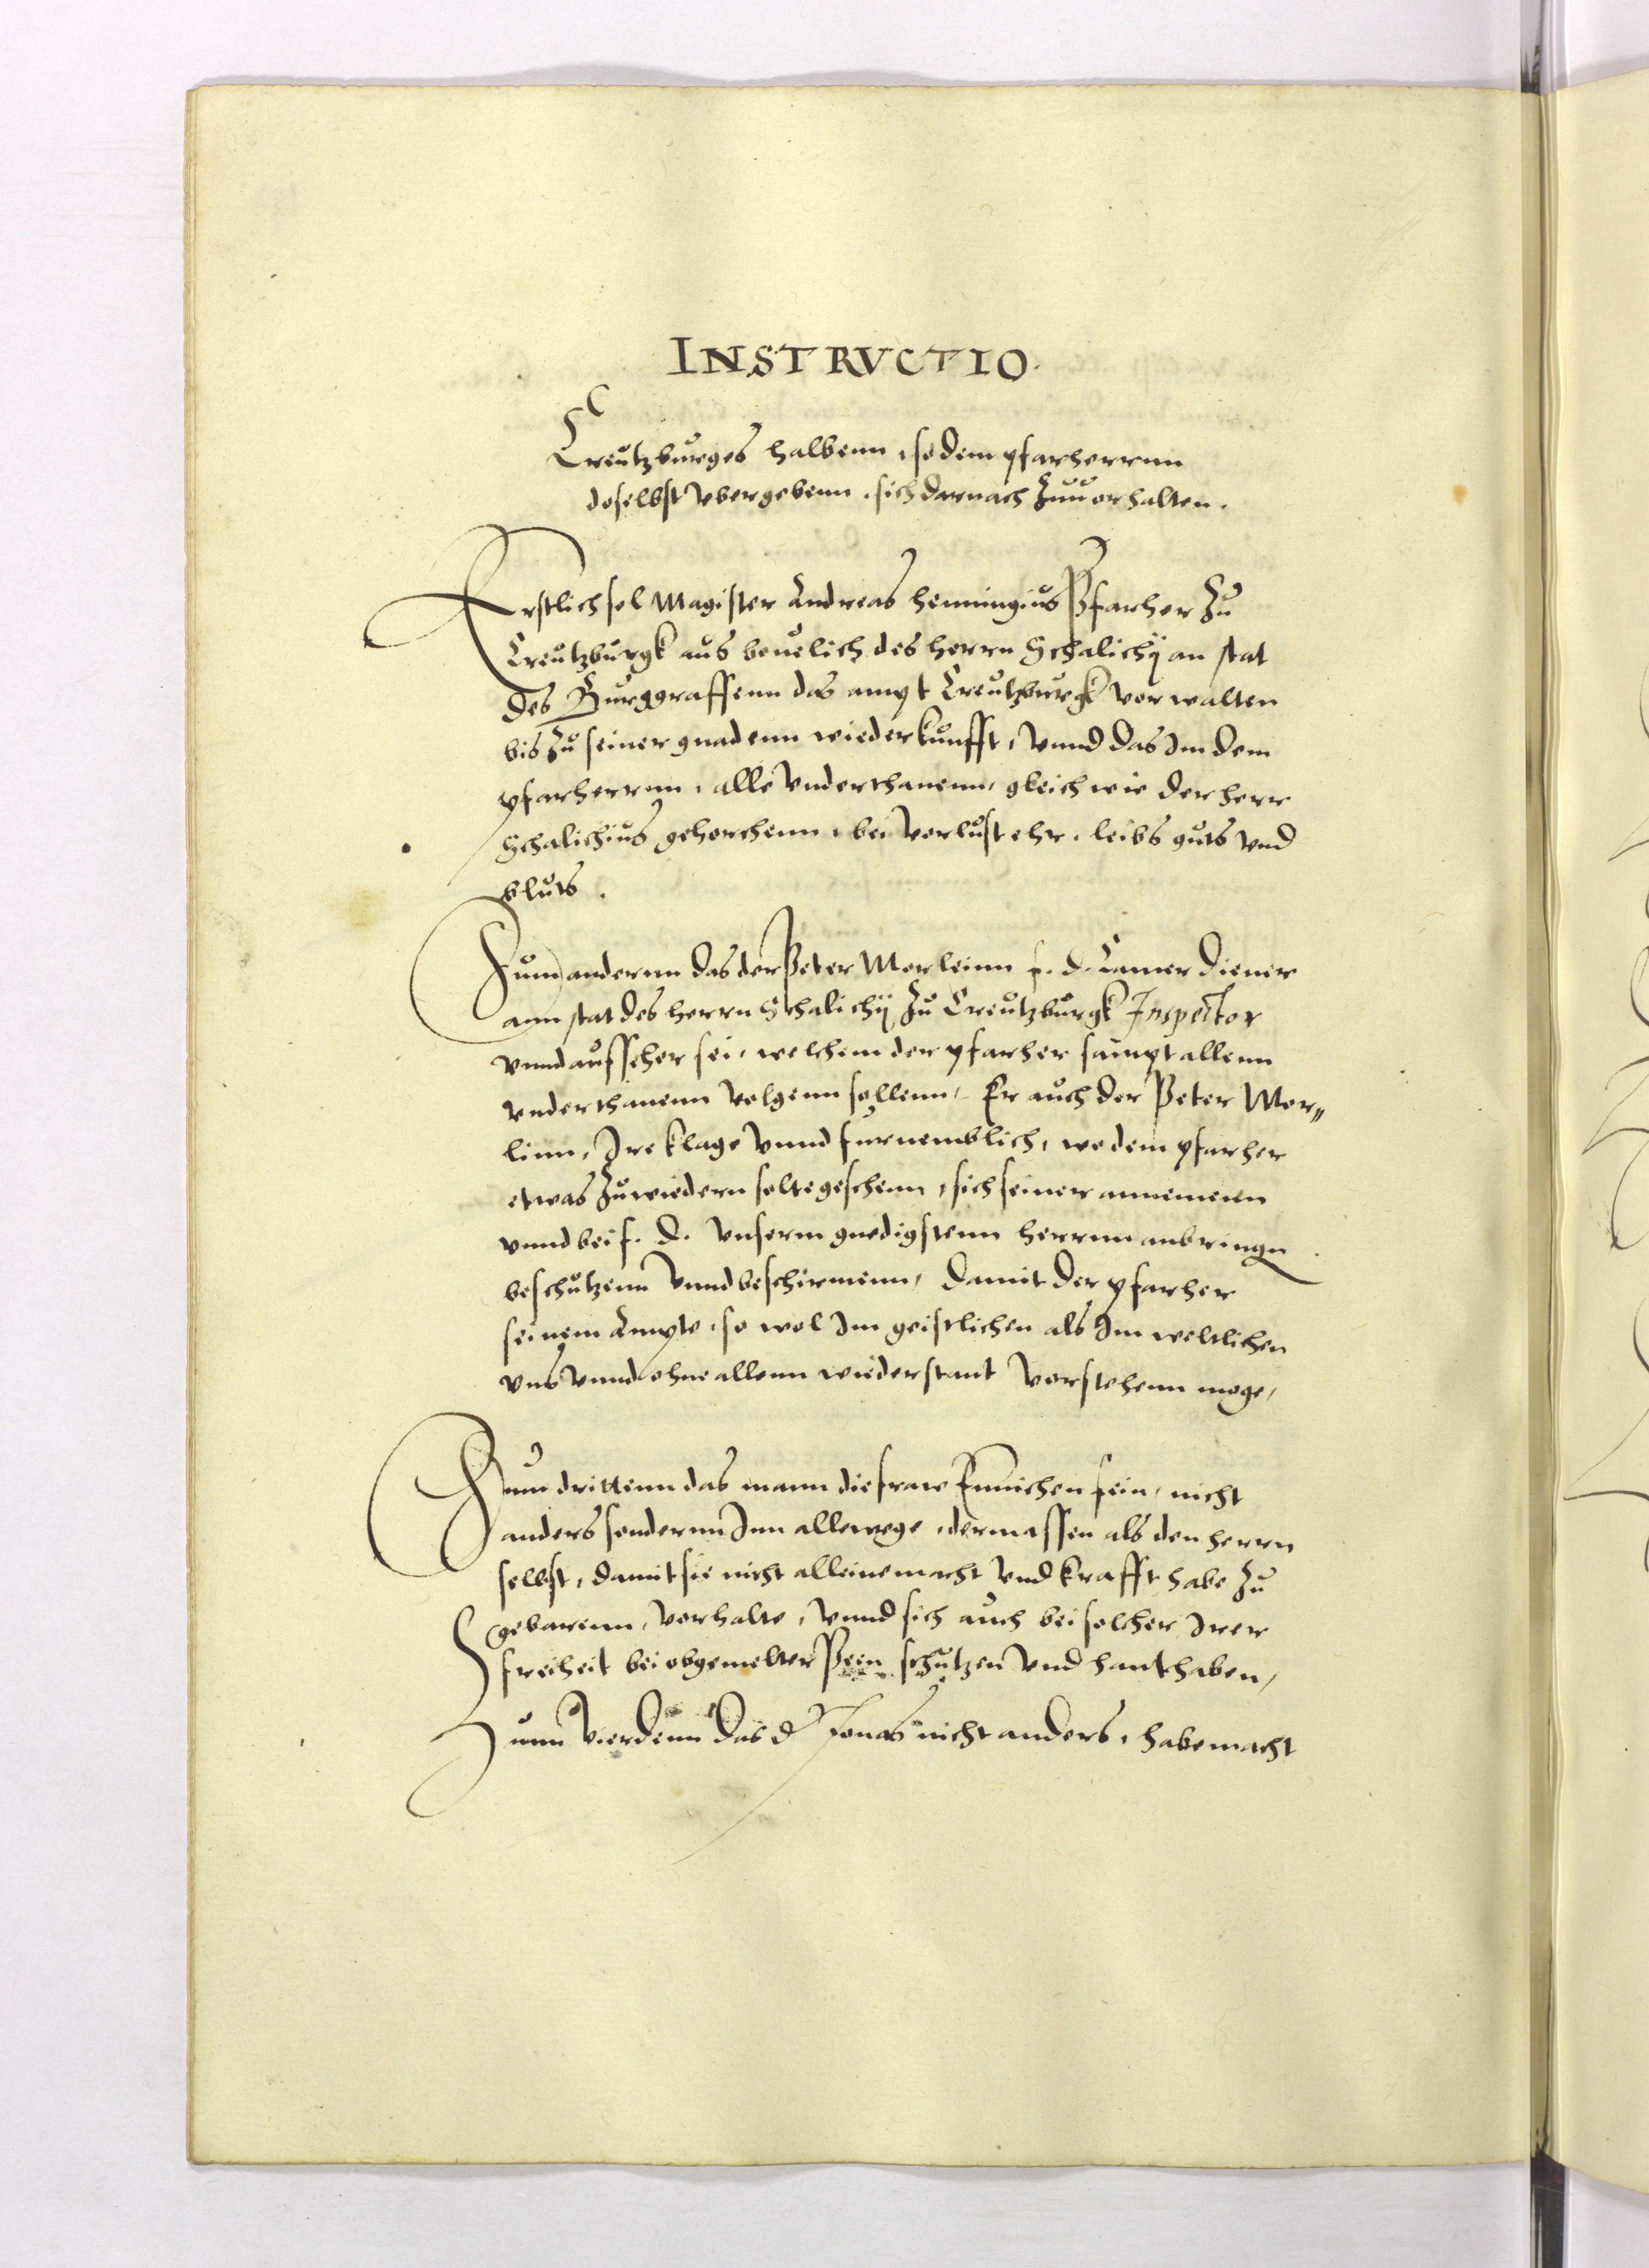 INSTRVCTIO.
Creutzburges halbenn, so dem pfarherrnn
doselbst vbergebenn, sich darnach zuuorhalten.
Erstlich sol Magister Andreas Henningius Pfarher zu
Creutzburgk aus beuelich des herrn Schalichij an stat
des Burggraffenn das ampt Creutzburgk vorwalten
bis zu seiner gnadenn wiederkunfft, vnnd das Im dem
pfarherrnn, alle vnderthanenn, gleich wie der herr
Schalichius gehorchenn, bei vorlust ehr, leibs guts vnd
bluts.
Zum andernn das der Peter Morleinn f. d. Camer diener
ann stat des herrn Schalichij zu Creutzburgk Inspector
vnnd aufseher sei, welchem der pfarher sampt allenn
vnderthanenn volgenn sollenn, Er auch der Peter Mor„
linn, Ire klage vnnd furnemblich, wo dem pfarher
etwas zuwiedern solte geschenn, sich seiner annemenn
vnnd bei f. d. vnserm gnedigstenn herrnn anbringen
beschutzenn vnnd beschirmenn, damit der pfarher
seinem Ampte, so wol Im geistlichen als Im weltlichen
vns vnnd ohne allenn wiederstant vorstehenn moge,
Zum drittenn das mann die fraw nicht
anders sondernn Inn allewege, dermassen als den herrn
selbst, damit sie nicht alleine macht vnd krafft habe zu
gebarenn, vorhalte, vnnd sich auch bei solcher Irer
freiheit bei obgemelter Peen schutzen vnd hanthaben,
Zum vierdenn das d Jonas nicht anders, habe macht